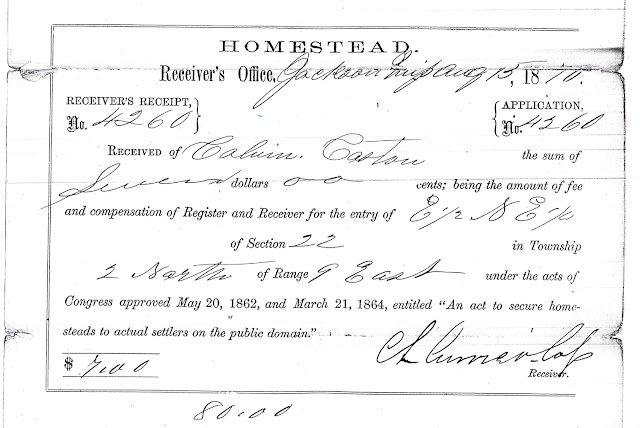 HOMESTEAD.
Receiver's Office, Jackson Miss Aug 15, 1870.
RECEIVER'S RECEIPT, No. 4260
APPLICATION, No. 4260
RECEIVED of Calvin Caston the sum of
Seven dollars 00 cents; being the amount of fee
and compensation of Register and Receiver for the entry of E 1/2 N E 1/4
of Section 22 in Township
2 North of Range 9 East under the acts of
Congress approved May 20, 1862, and March 21, 1864, entitled "An act to secure home-
steads to actual settlers on the public domain."
$ 7.00
Receiver.
80.00